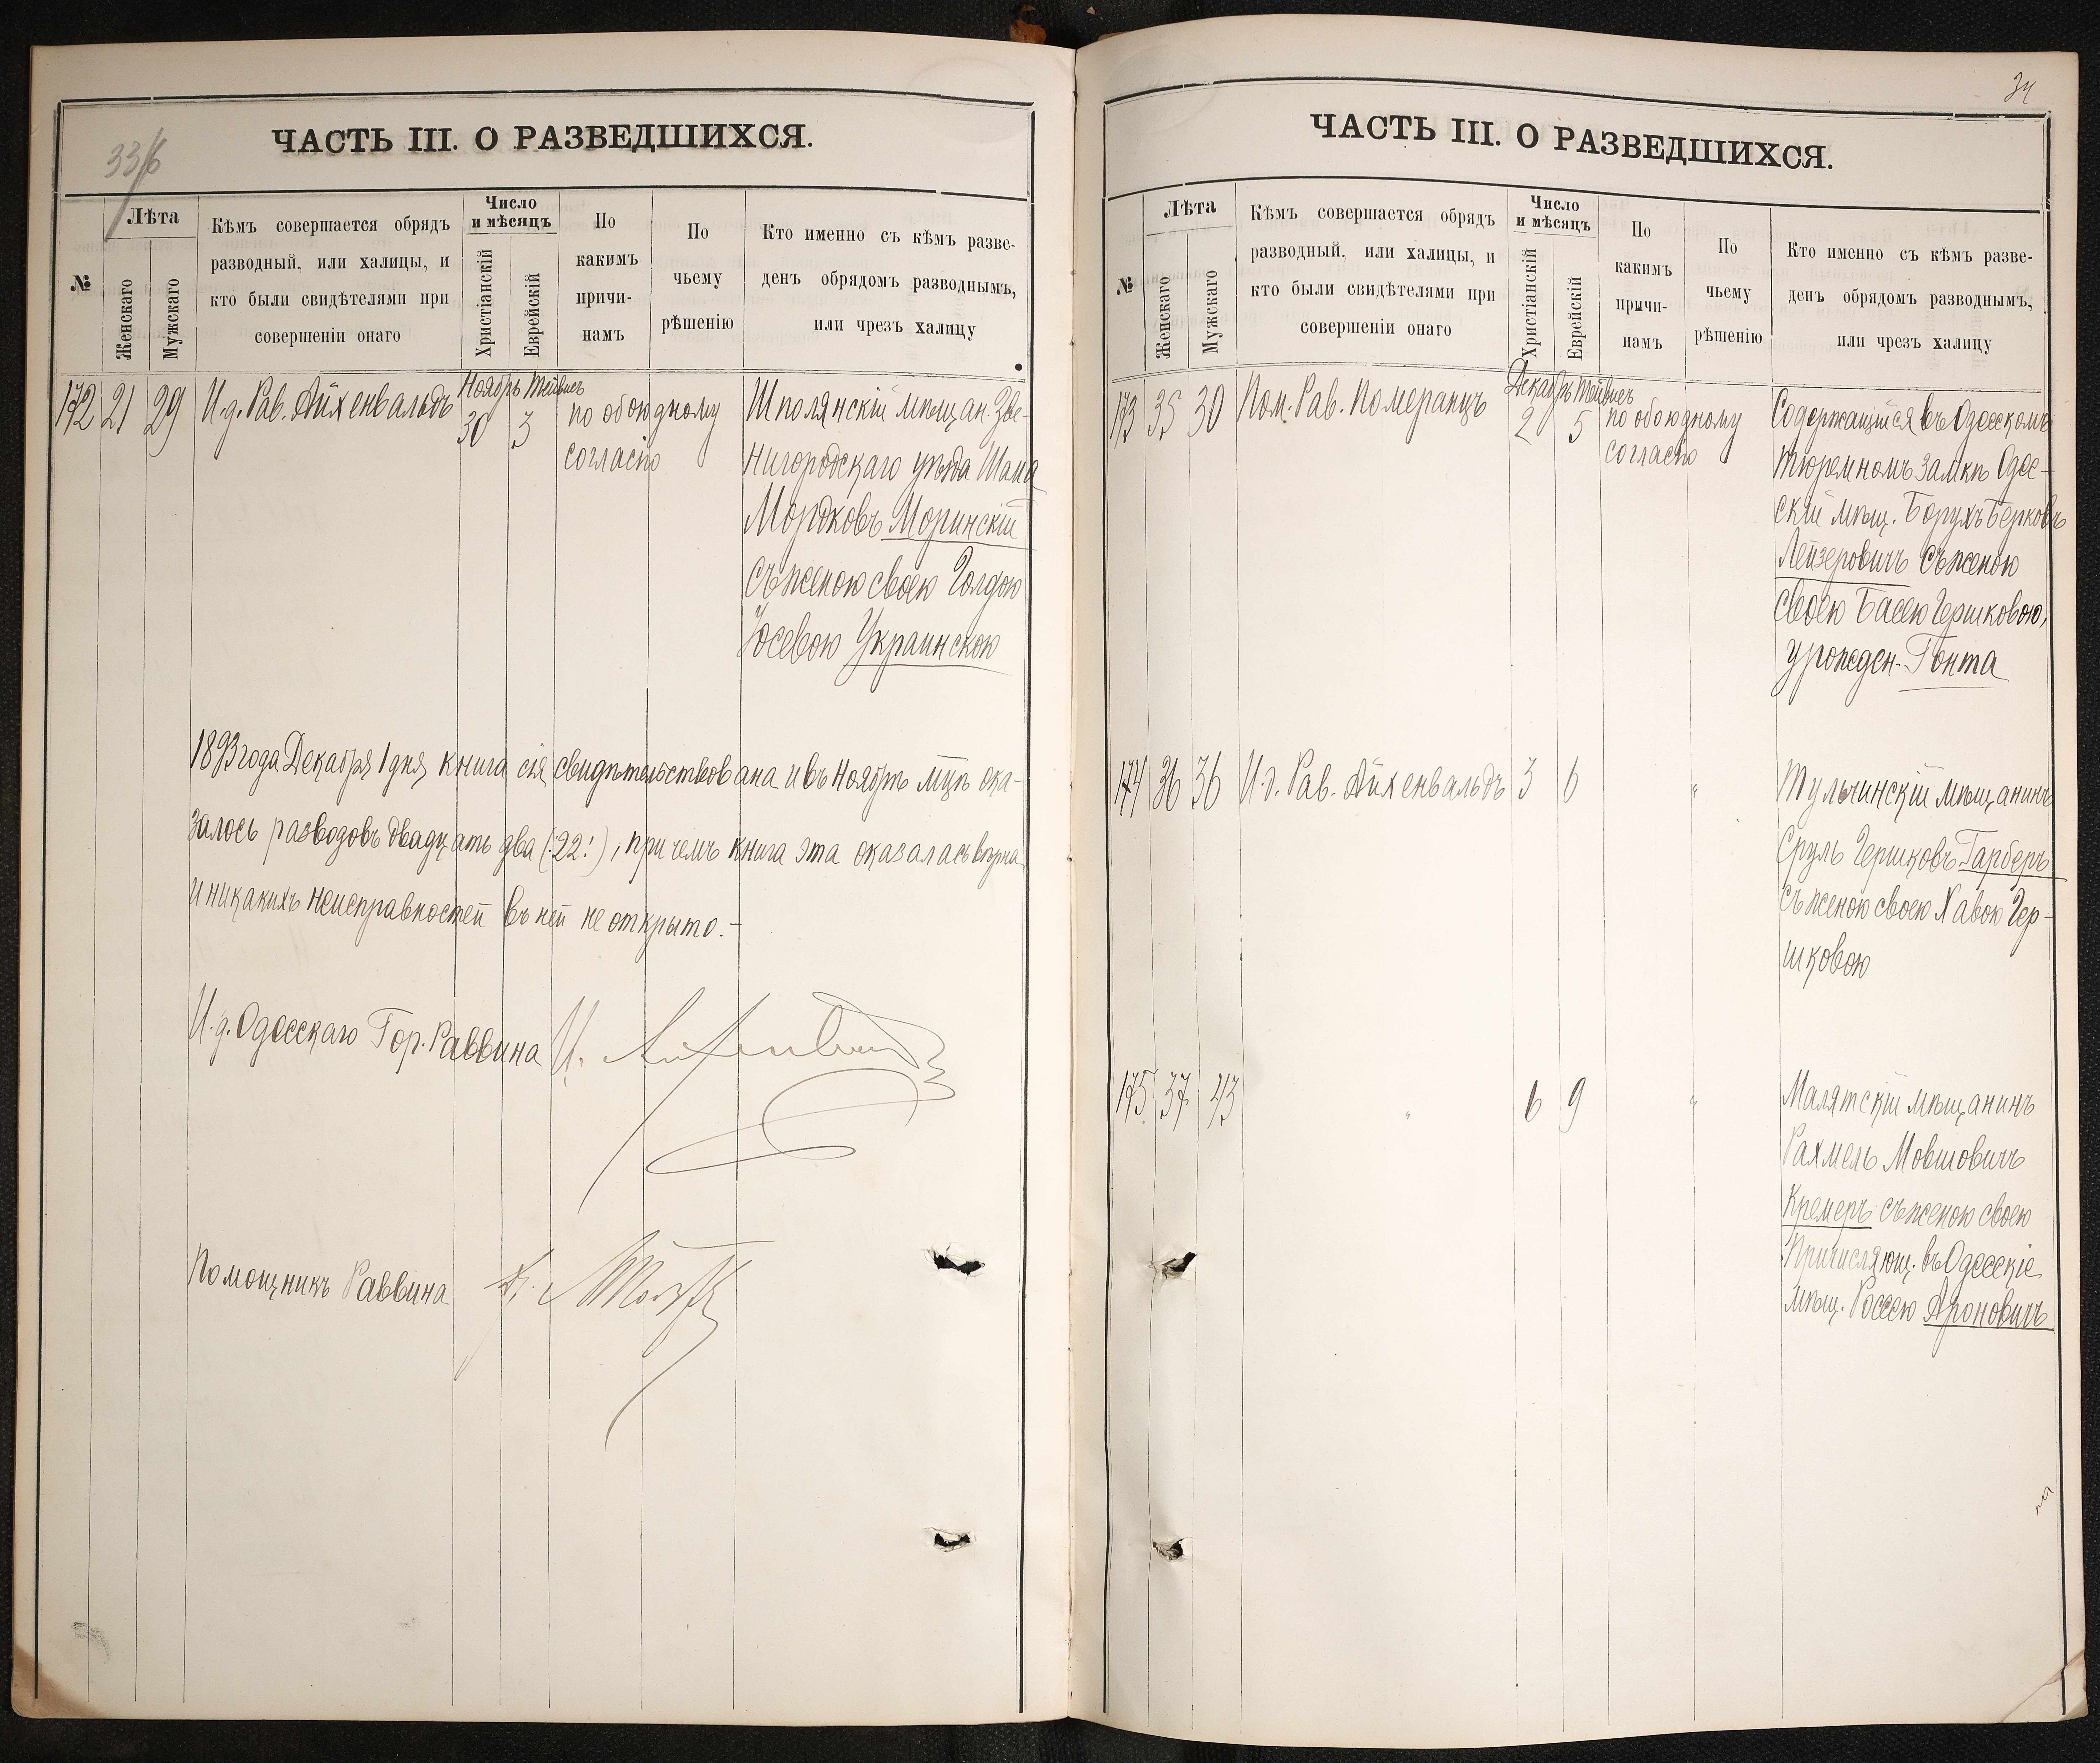 33/6
ЧАСТЬ III. О РАЗВЕДШИХСЯ.
№
Лѣта
Женскаго
Мужскаго
Кѣмъ совершается обрядъ
разводный, или халицы, и
кто были свидѣтелями при
совершеніи онаго
Число
и мѣсяцъ
Христіанскій
Еврейскій
По
какимъ
причи-
намъ
По
чьему
рѣшенію
Кто именно съ кѣмъ разве-
денъ обрядомъ разводнымъ,
или чрезъ халицу
Ноябрь Тейвисъ
172 21 29 И.д. Рав. Айхенвальдъ 30 3
по обоюдному
согласію
Шполянскій мѣщан. Зве-
нигородскаго уѣзда Шама
Мордковъ Моринскій
съ женою своею Голдою
Іосевою Украинскою
1893 года Декабря 1 дня книга сія свидѣтельствована и въ Ноябрѣ мцѣ ока-
залось разводовъ двадцать два (:22:), при чемъ книга эта оказалась вѣрна
и никакихъ неисправностей въ ней не открыто.-
И.д. Одесскаго Гор. Раввина
Помощникъ Раввина
34
ЧАСТЬ III. О РАЗВЕДШИХСЯ.
№
Лѣта
Женскаго
Мужскаго
Кѣмъ совершается обрядъ
разводный, или халицы, и
кто были свидѣтелями при
совершеніи онаго
Число
и мѣсяцъ
Христіанскій
Еврейскій
По
какимъ
причи-
намъ
По
чьему
рѣшенію
Кто именно съ кѣмъ разве-
денъ обрядомъ разводнымъ,
или чрезъ халицу
Декабрь Тейвисъ
173 35 30 Пом. Рав. Померанцъ 2 5
по обоюдному
согласію
Содержащійся въ Одесскомъ
тюремномъ замкѣ Одес-
скій мѣщ. Борухъ Берковъ
Лейзеровичъ съ женою
своею Басею Гершковою,
урожден. Гонта
174 36 36 И.д. Рав. Айхенвальдъ 3 6 "
Тульчинскій мѣщанинъ
Сруль Гершковъ Гарберъ
съ женою своею Хавою Гер-
шковою
175 37 43 " 6 9 "
Малятскій мѣщанинъ
Рахмель Мовшовичъ
Кремеръ съ женою своею
Причисляющ. въ Одесскіе
мѣщ. Россею Ароновичъ